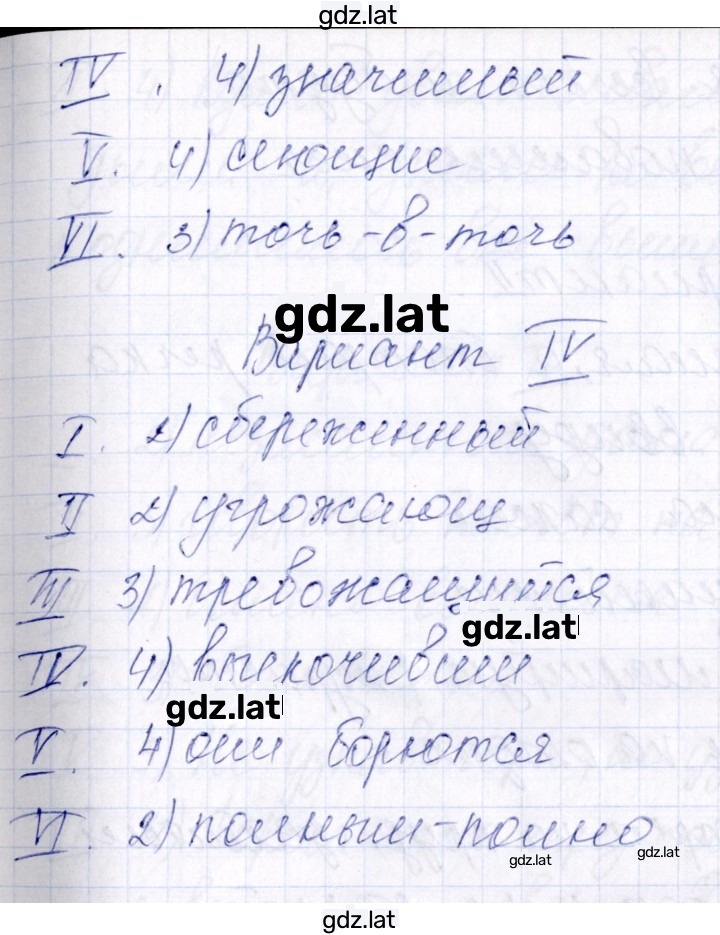 gdz.lat
IV. 4) значимый
V. 4) сеющие
VI. 3) точь-в-точь
gdz.lat
Вариант IV
I. 2) сбереженный
II 2) угрожающ
III 3) тревожащийся
gdz.lat
IV. 4) выскочивши
gdz.lat
V. 4) они борются
VI. 2) полным-полно
gdz.lat
gdz.lat
gdz.lat